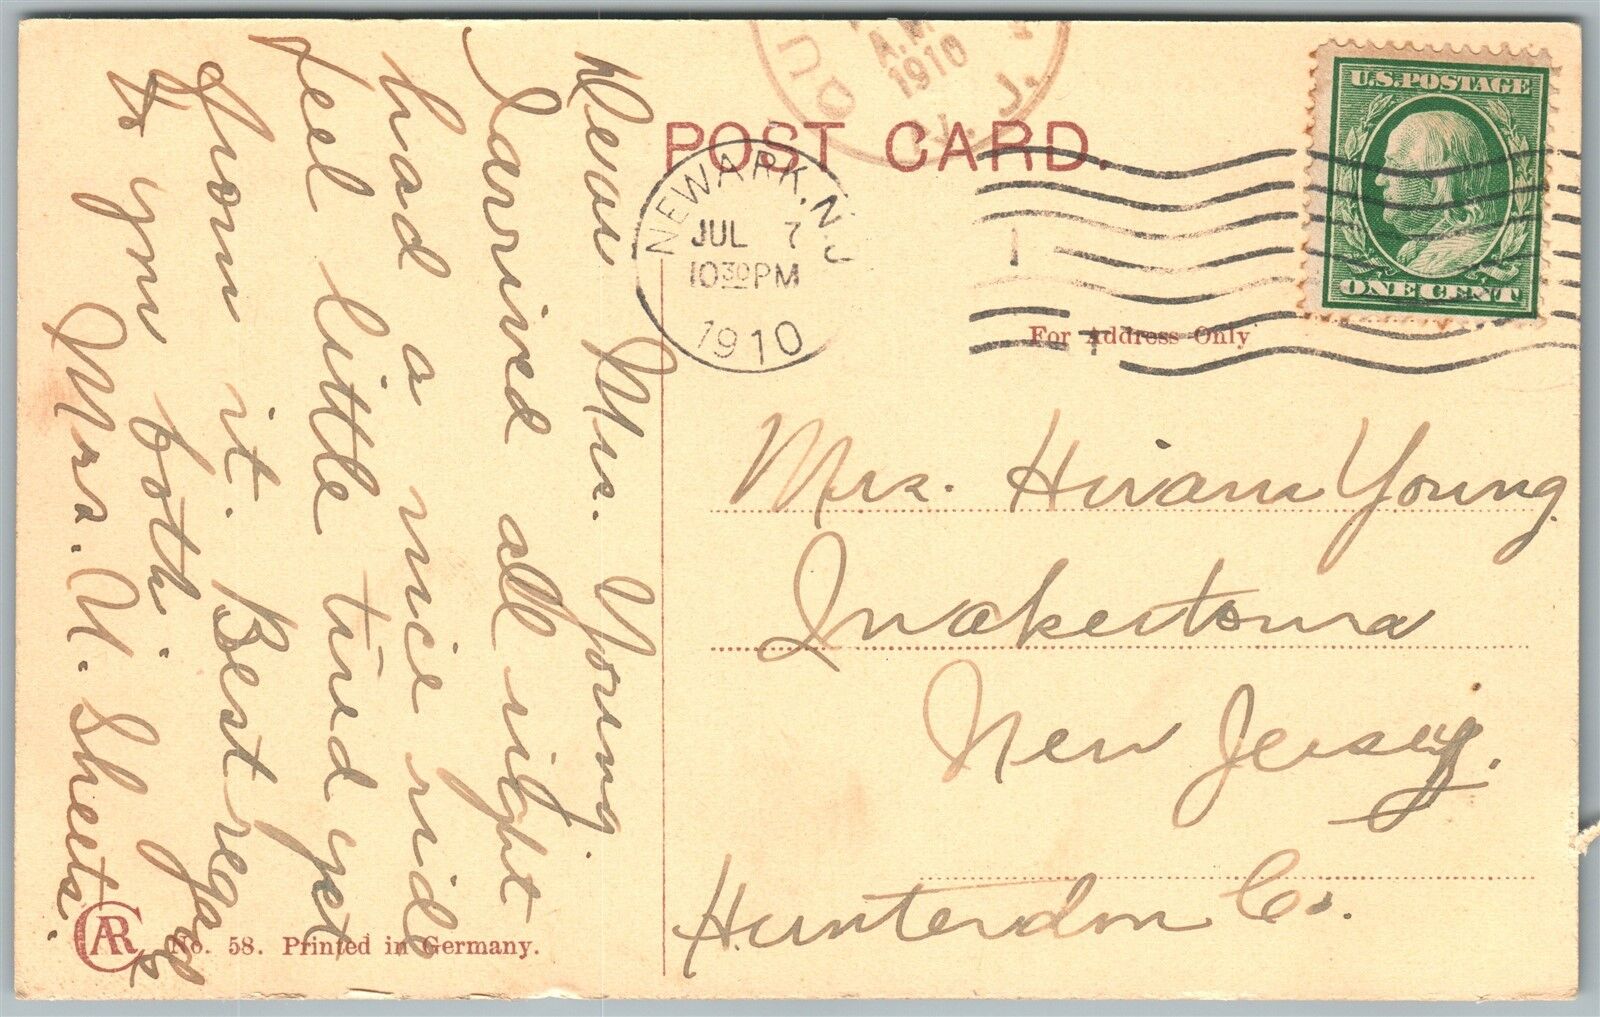 Dear Mrs. Young.
I arrived all right
had a nice ride
feel little tired yet
from it. Best regards
to you both.
Mrs. U. Sheets.
POST CARD.
QU
A.M.
1910
N. J.
NEWARK, N.J.
JUL 7
10 30 PM
1910
U.S. POSTAGE
ONE CENT
For Address Only
Mrs. Hiram Young
Quakertown
New Jersey.
Hunterdon Co.
CAR No. 58. Printed in Germany.